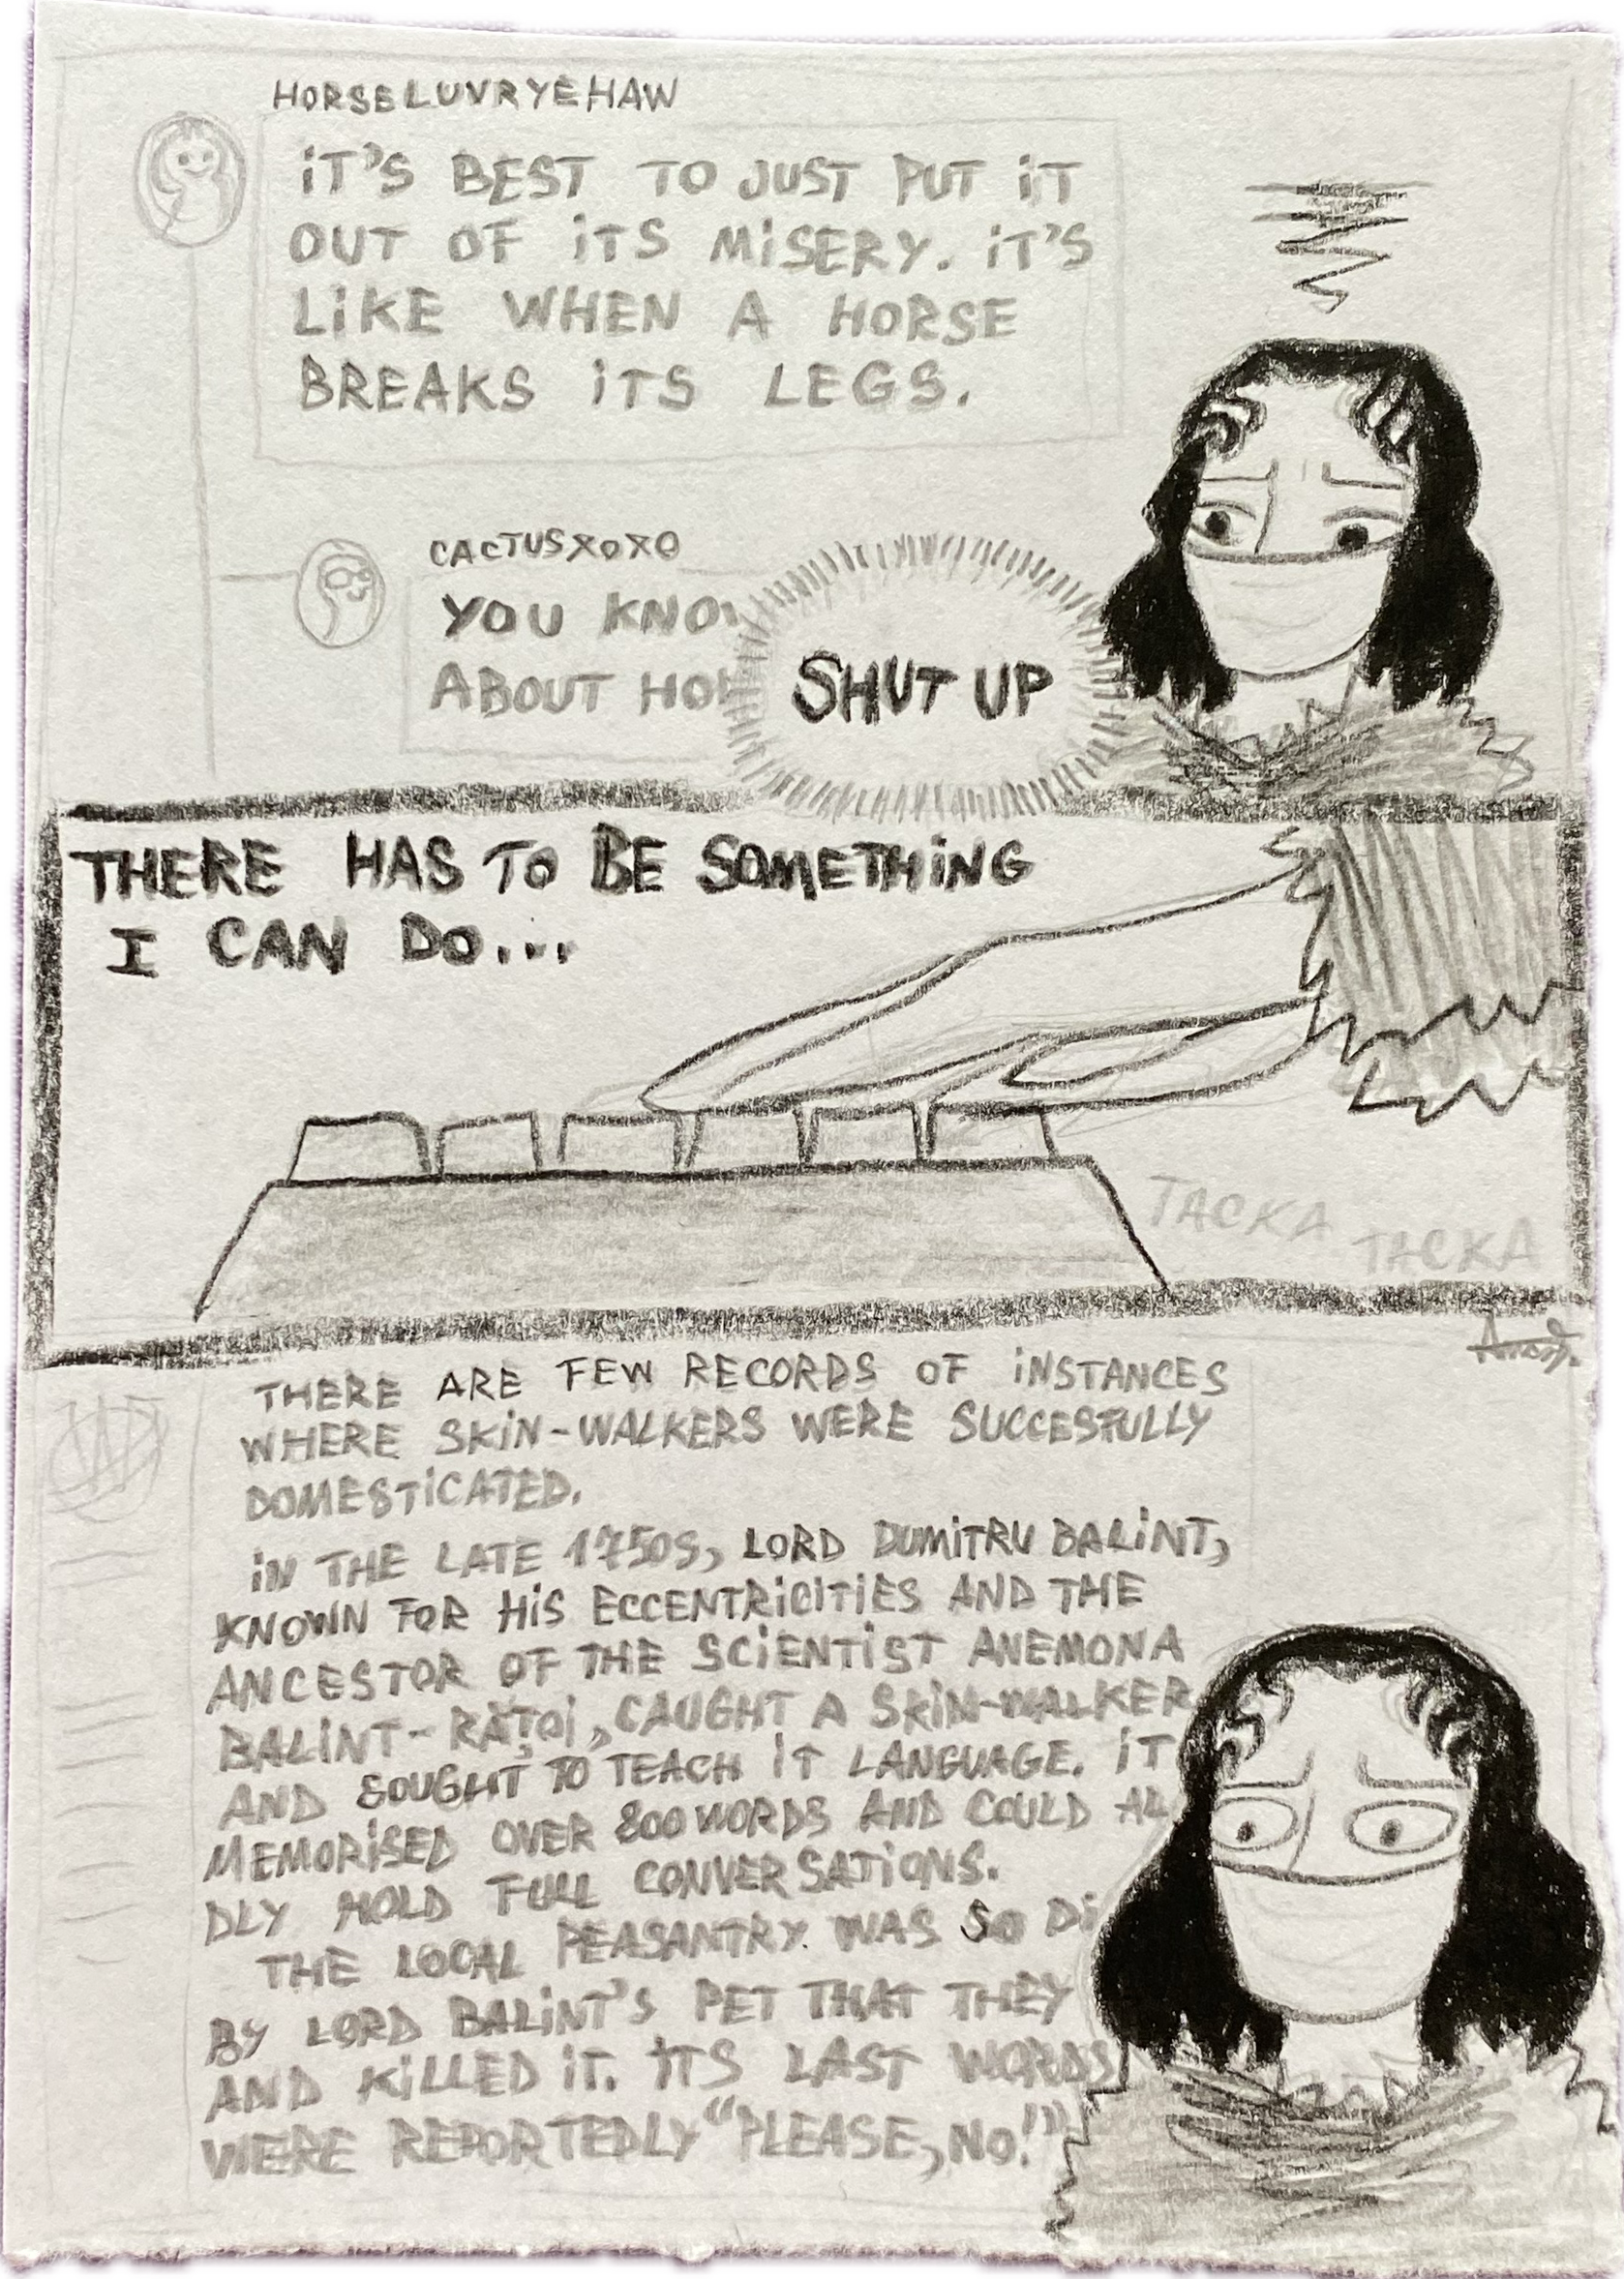 HORSELUVRYEHAW
iT'S BEST TO JUST PUT iT
OUT OF iTS MiSERY. iT'S
LiKE WHEN A HORSE
BREAKS iTS LEGS.
CACTUSXOXO
YOU KNO
ABOUT HO
SHUT UP
THERE HAS TO BE SOMETHiNG
I CAN DO...
TACKA
TACKA
THERE ARE FEW RECORDS OF iNSTANCES
WHERE SKiN-WALKERS WERE SUCCESFULLY
DOMESTiCATED.
iN THE LATE 1750S, LORD DUMiTRU BALiNT,
KNOWN FOR HiS ECCENTRiCiTiES AND THE
ANCESTOR OF THE SCiENTiST ANEMONA
BALiNT-RĂȚOi, CAUGHT A SKiN-WALKER
AND SOUGHT TO TEACH iT LANGUAGE. iT
MEMORiSED OVER 800 WORDS AND COULD AL
DLY HOLD FULL CONVERSATiONS.
THE LOCAL PEASANTRY WAS SO Di
BY LORD BALiNT'S PET THAT THEY
AND KiLLED iT. iTS LAST WORDS
WERE REPORTEDLY "PLEASE, NO!"